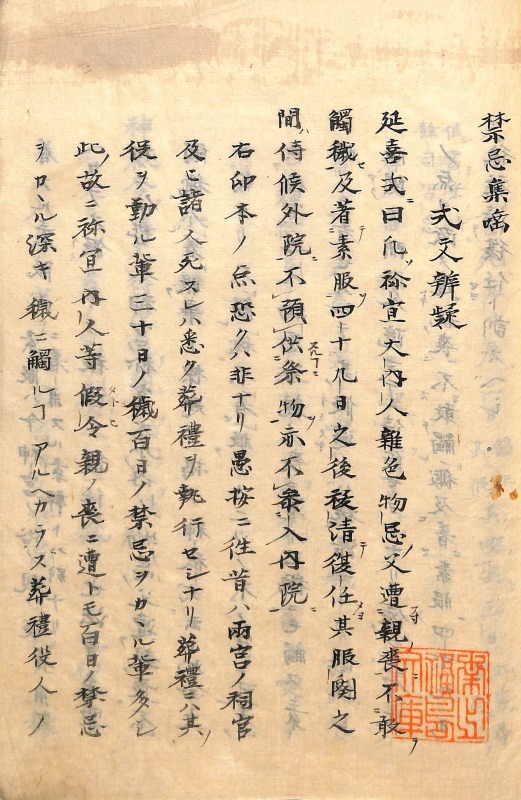 禁忌集唹
式文辨疑
延喜式曰凡祢宜大内人雜色物忌父遭親喪不敢
觸穢及着素服四十九日之後祓清復任其服闋之
間侍候外院不預供祭物亦不參入内院
右印本ノ点恐クハ非ナリ愚按ニ往昔ハ兩宮ノ祠官
及ヒ諸人死スレハ悉ク葬禮ヲ執行セシナリ葬禮ニハ其
役ヲ勤ル輩三十日ノ穢百日ノ禁忌ヲカヽル輩多シ
此故ニ祢宜内人等假令親ノ喪ニ遭トモ百日ノ禁忌
ヲカヽル深キ穢ニ觸ルヿアルヘカラス葬禮役人ノ